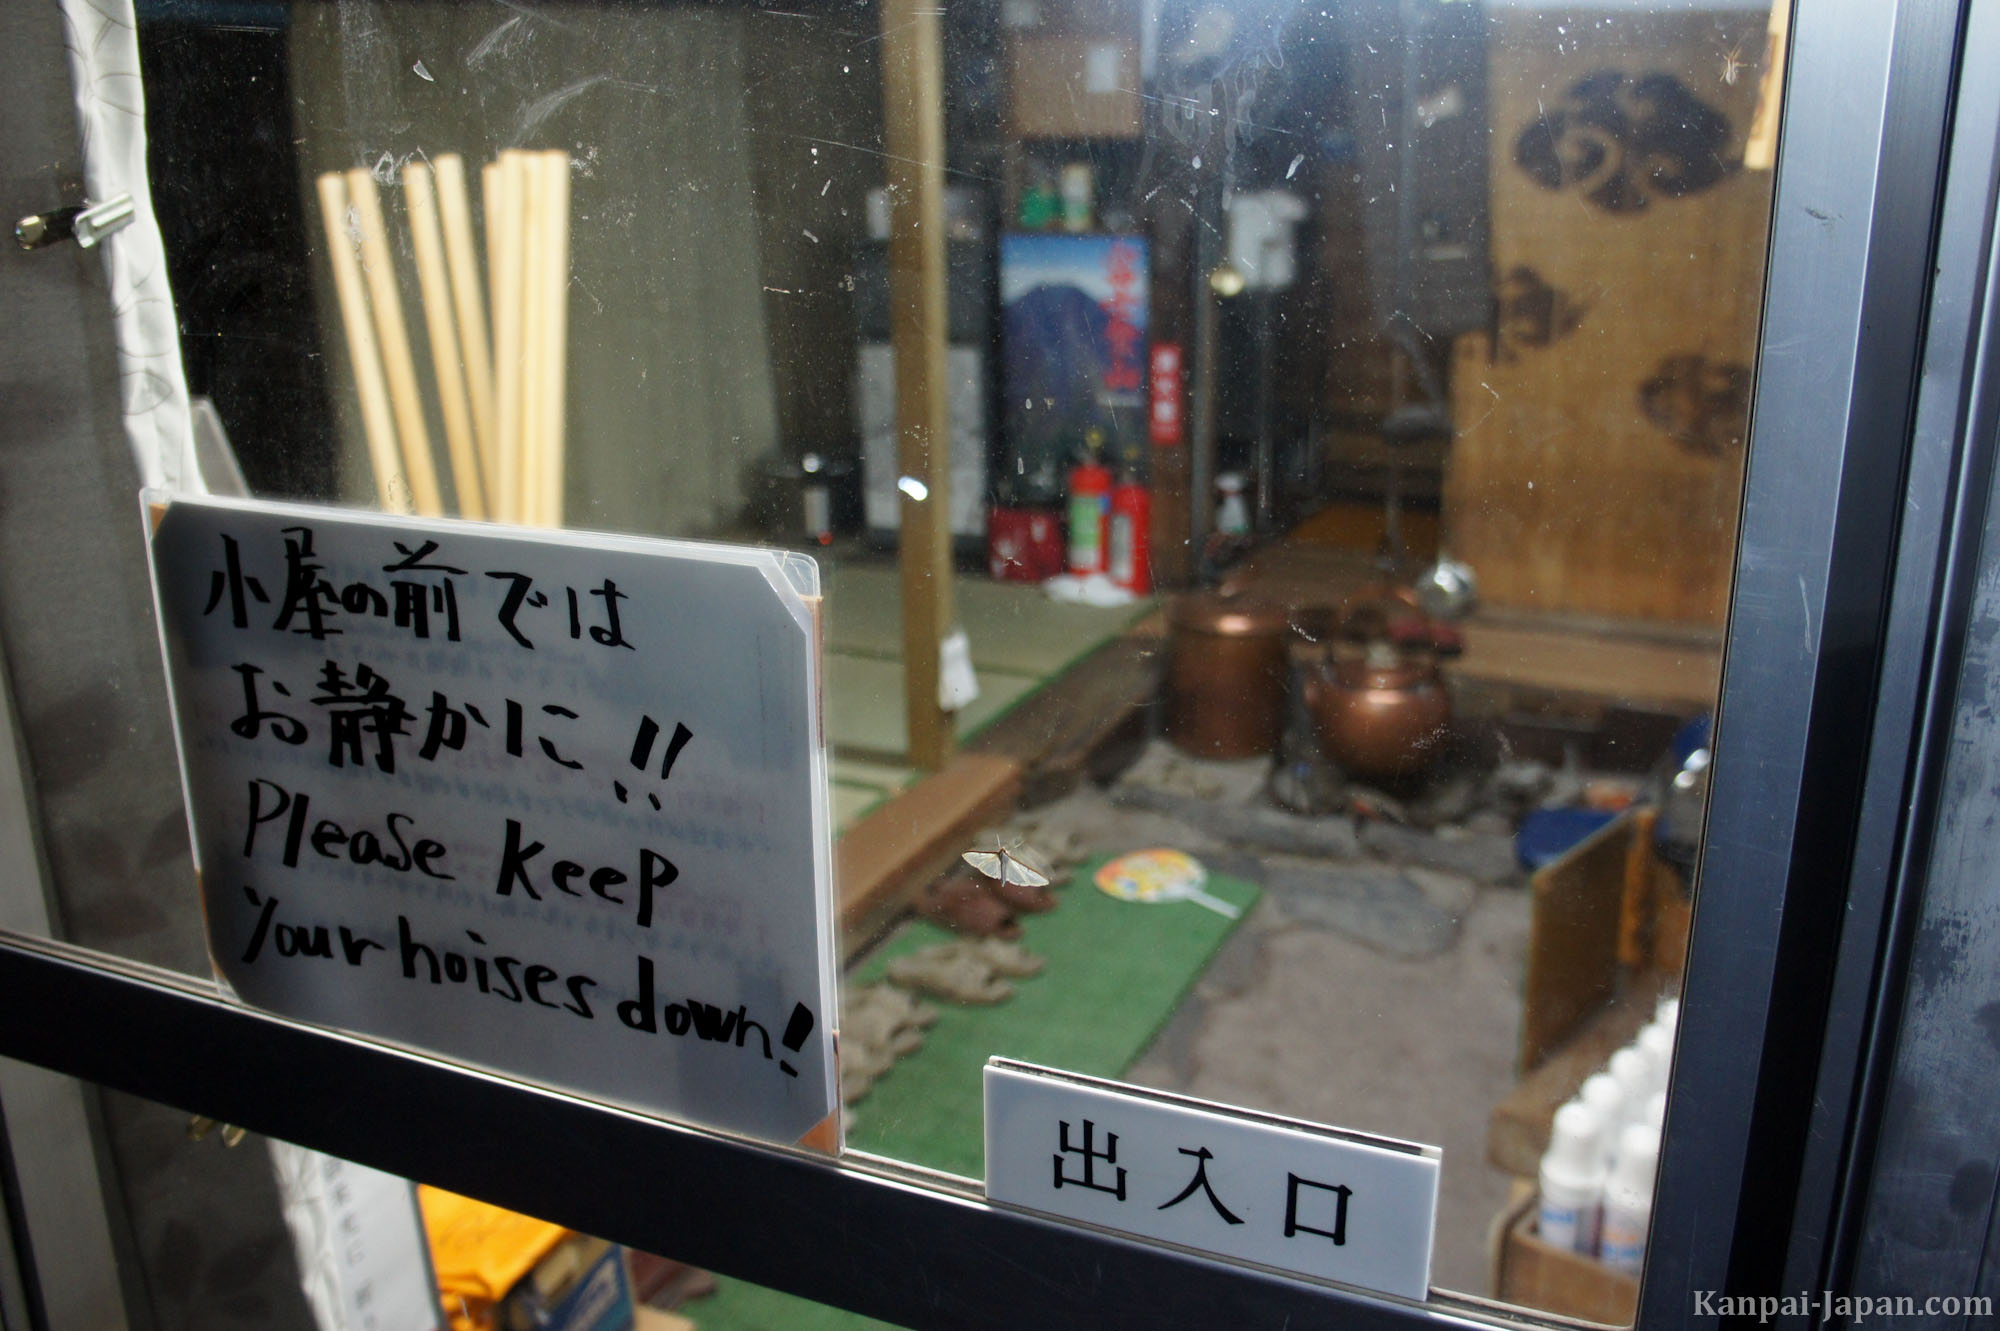 小屋の前では
お静かに!!
Please keep
your noises down!
出入口
Kanpai-Japan.com